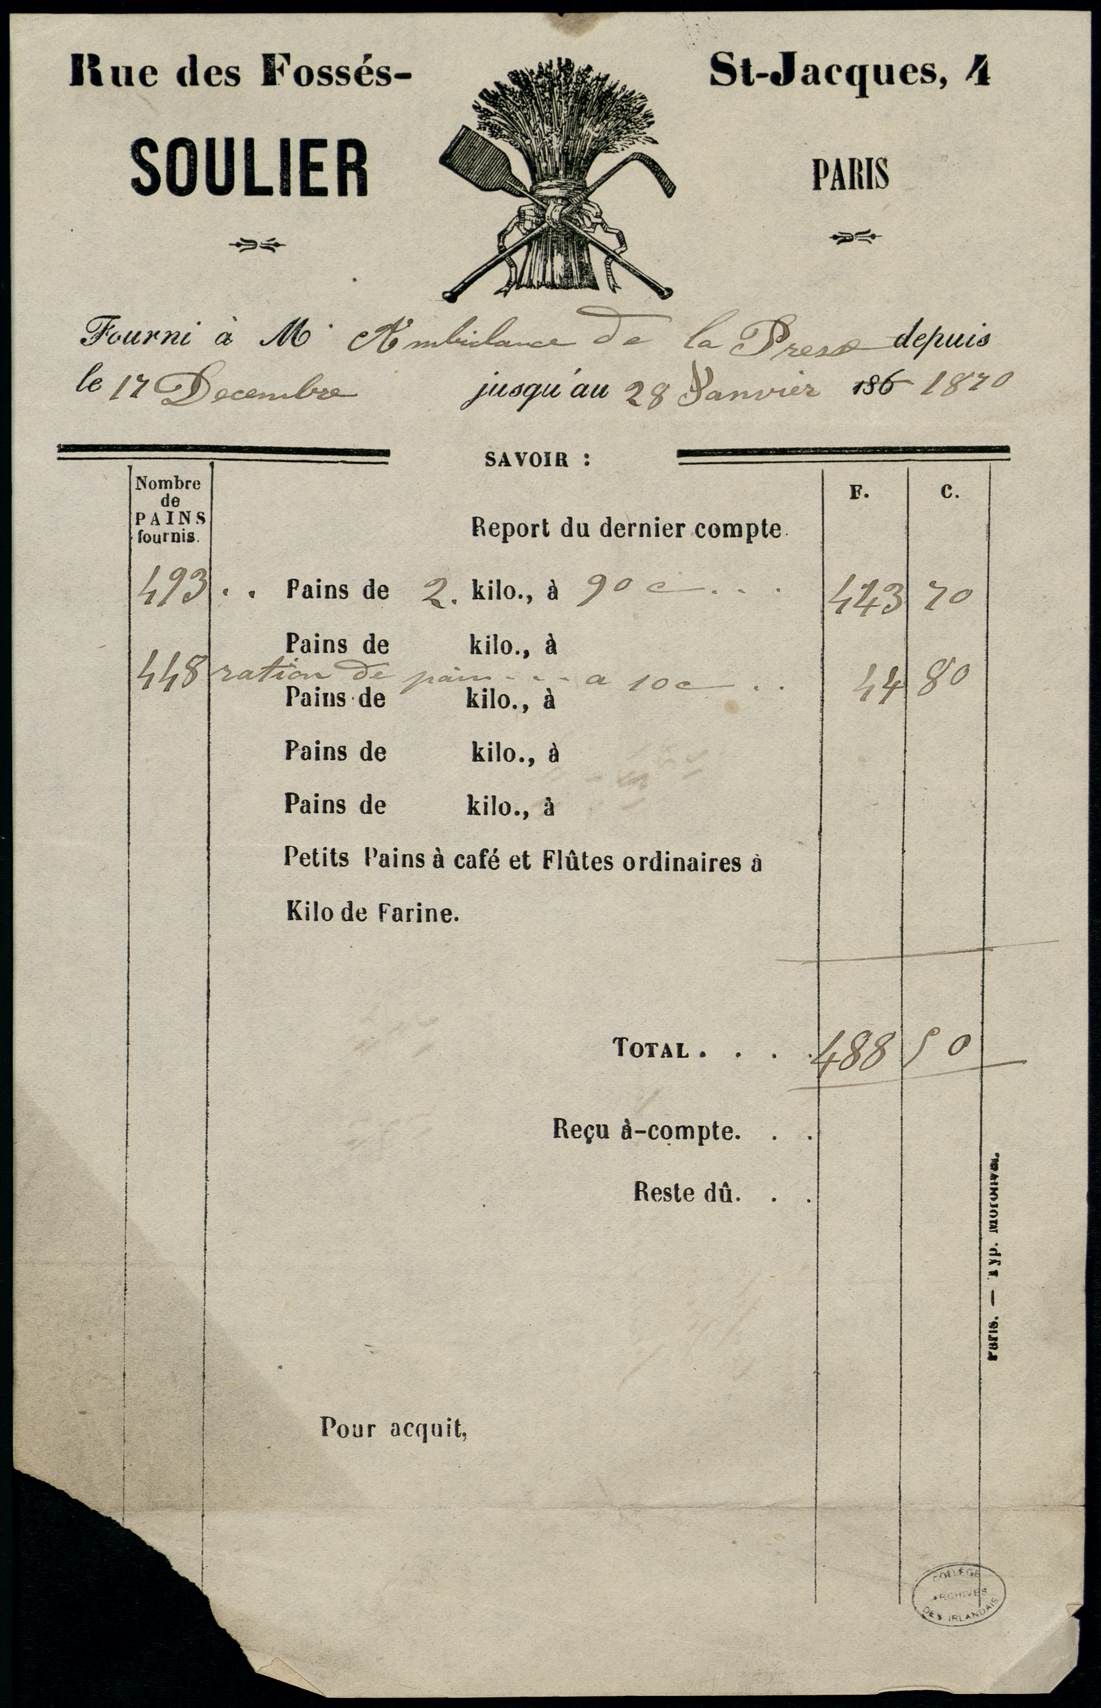 Rue des Fossés-St-Jacques, 4
SOULIER
PARIS
Fourni à M. Ambulance de la Presse depuis
le 17 Decembre jusqu'au 28 Janvier 186 1870
SAVOIR :
Nombre de PAINS fournis.
F. C.
Report du dernier compte.
493 . . Pains de 2. kilo., à 90 c . . . 443 70
Pains de kilo., à
448 ration de pain - - - a 10 c . . 44 80
Pains de kilo., à
Pains de kilo., à
Pains de kilo., à
Petits Pains à café et Flûtes ordinaires à
Kilo de Farine.
TOTAL . . . . 488 50
Reçu à-compte. . .
Reste dû. . .
Paris. — Typ. Morris
Pour acquit,
COLLEGE
ARCHIVES
DES IRLANDAIS